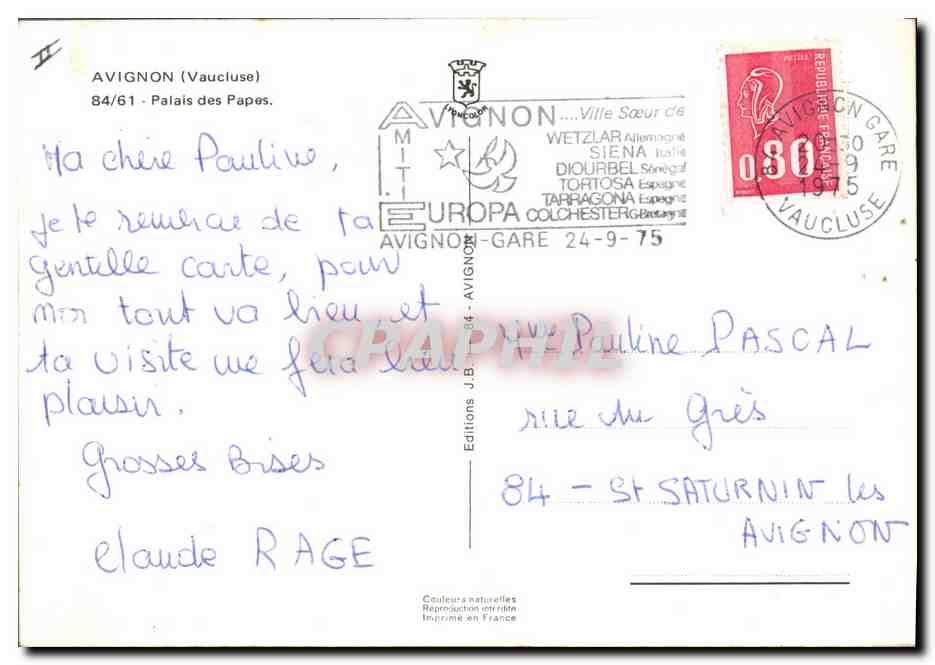 II
AVIGNON (Vaucluse)
84/61 - Palais des Papes.
LYONCOLOR
AVIGNON....Ville Sœur de
AMITIE
WETZLAR Allemagne
SIENA Italie
DIOURBEL Sénégal
TORTOSA Espagne
TARRAGONA Espagne
EUROPA COLCHESTER G.Bretagne
AVIGNON-GARE 24-9-75
REPUBLIQUE FRANÇAISE
0,80
AVIGNON GARE
24-9
1975
VAUCLUSE
Ma chère Pauline,
je te remercie de ta
gentille carte, pour
moi tout va bien, et
ta visite me fera bien
plaisir.
Grosses Bises
Claude RAGE
Editions J.B. 84 - AVIGNON
CPAPHIL
Mme Pauline PASCAL
rue du Grès
84 - St SATURNIN les
AVIGNON
Couleurs naturelles
Reproduction interdite
Imprimé en France